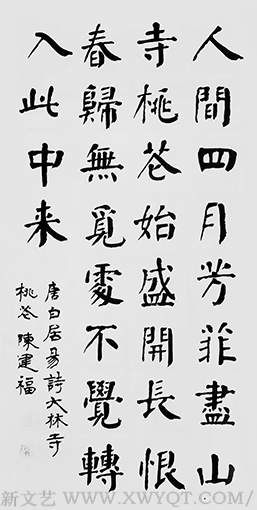 人間四月芳菲盡山
寺桃花始盛開長恨
春歸無覓處不覺轉
入此中来
唐白居易詩大林寺
桃花 陳建福
新文艺 WWW.XWYQT.COM/